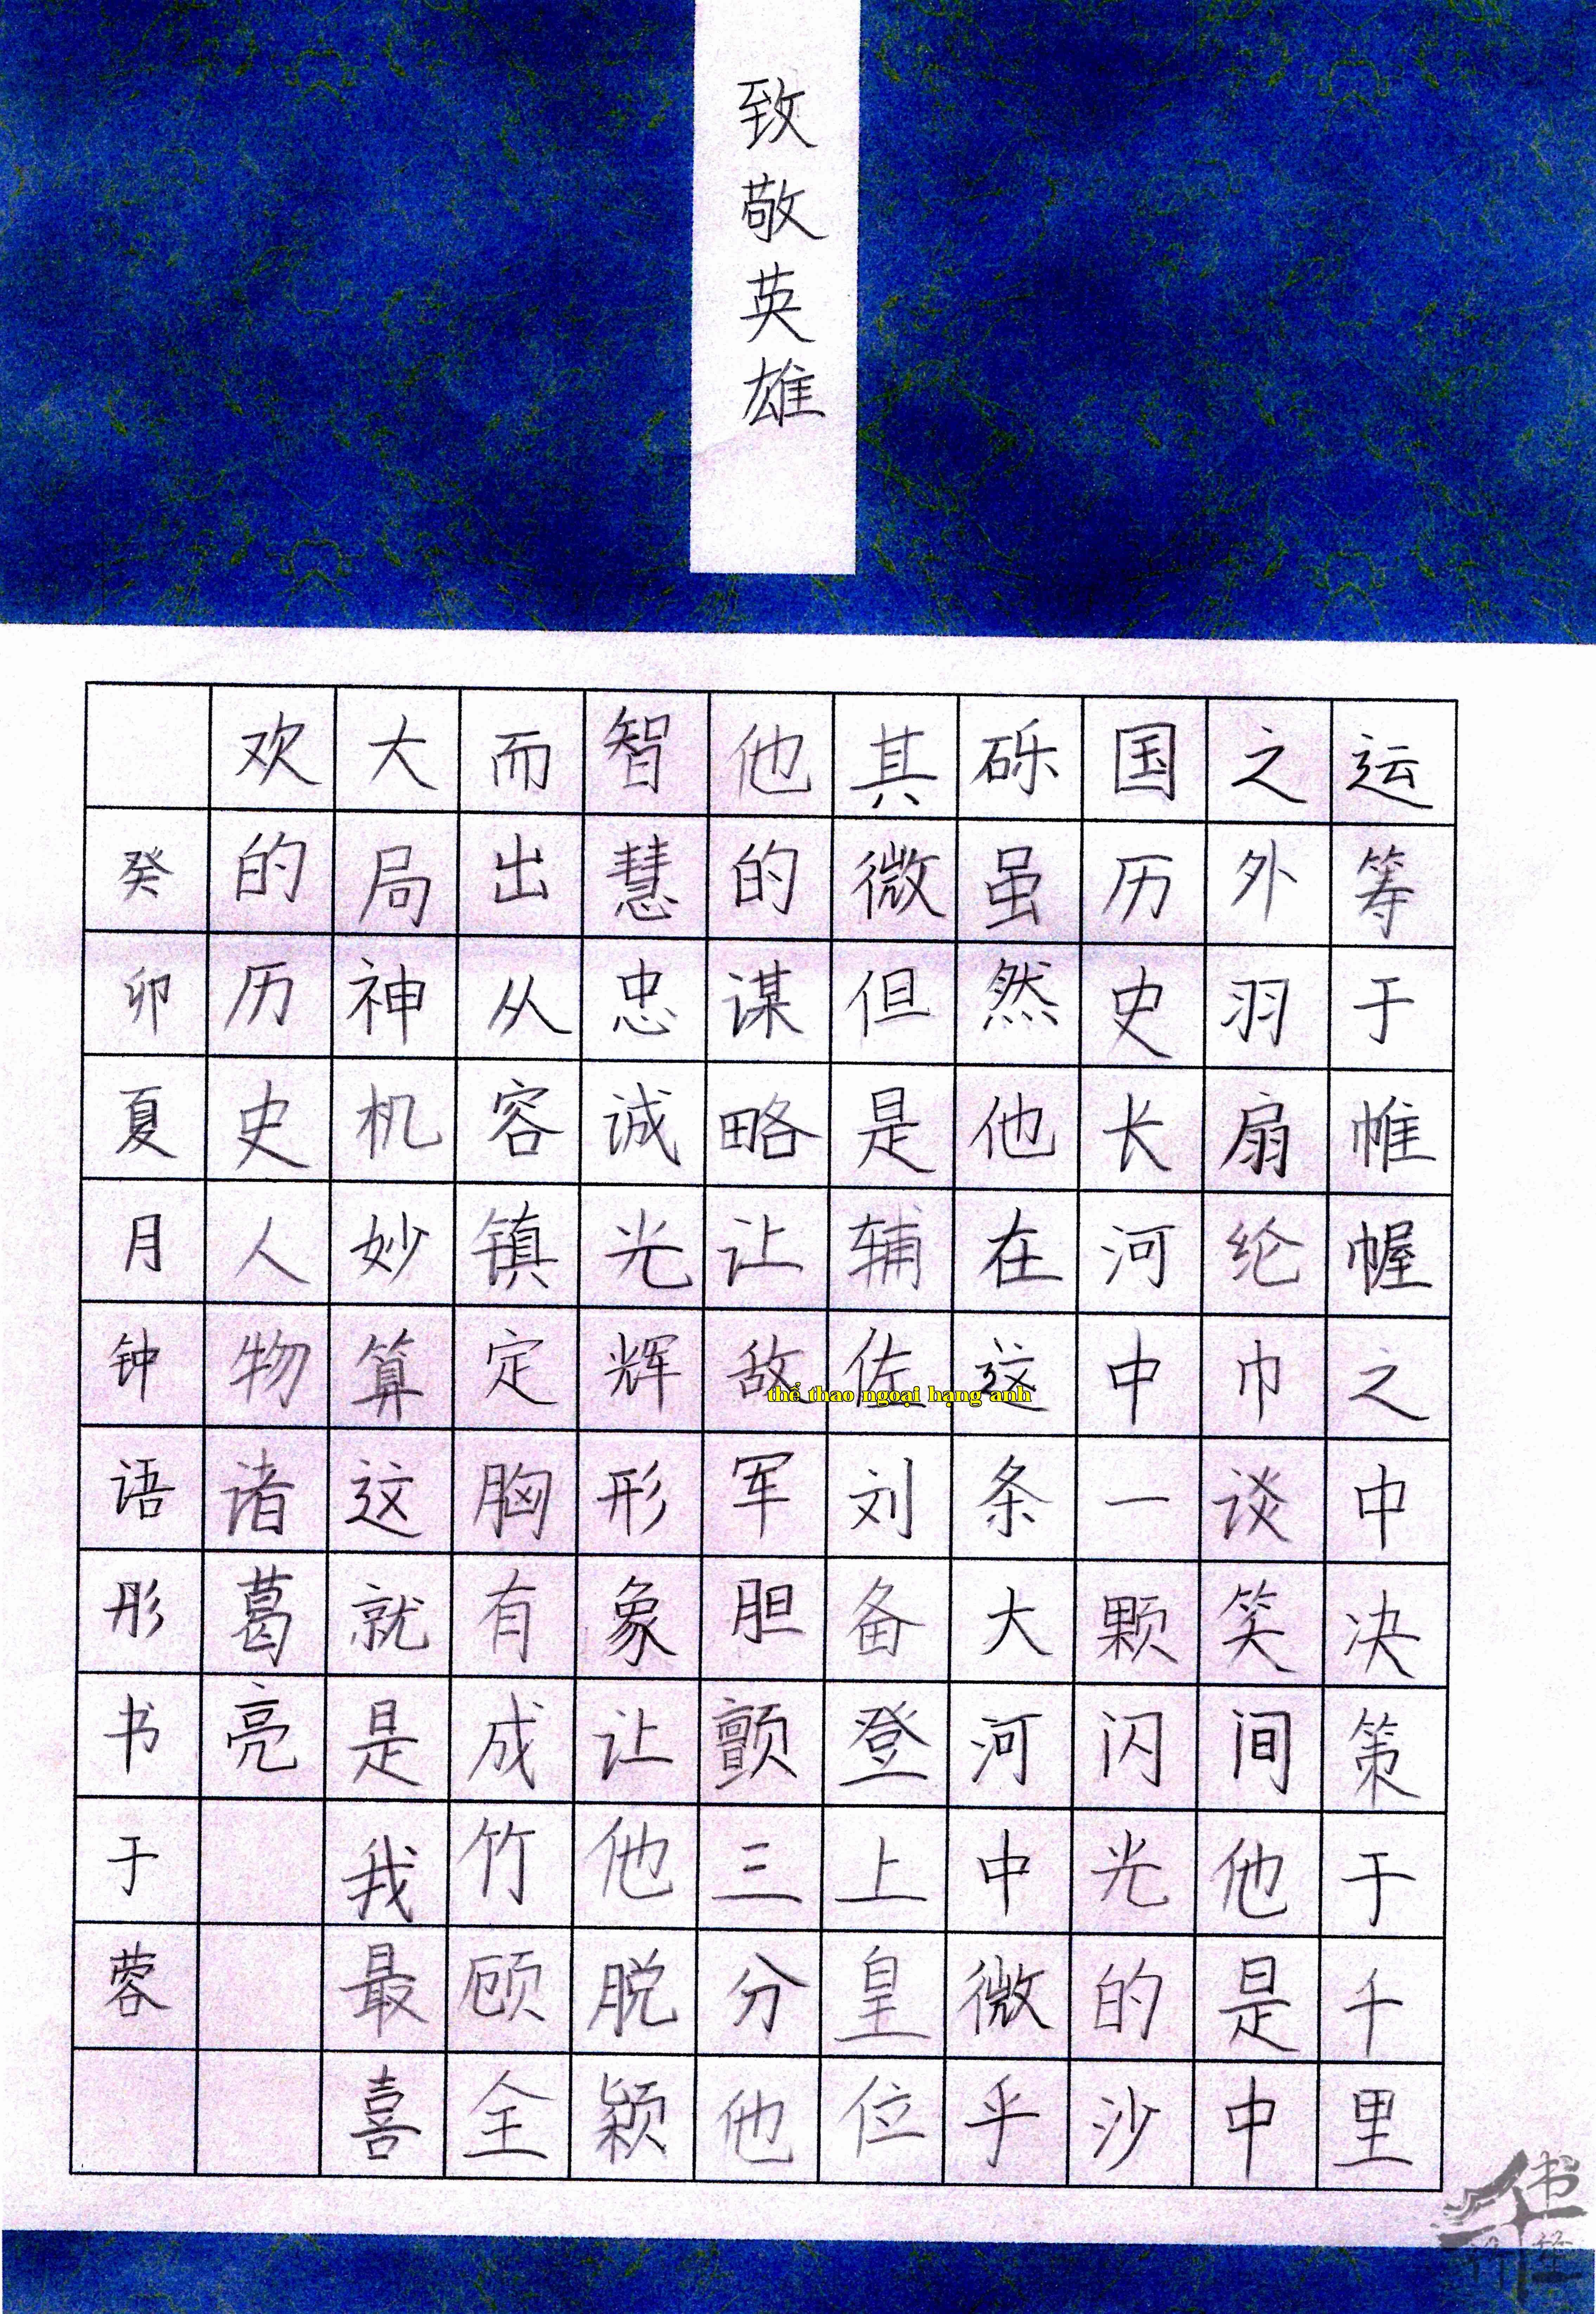 致敬英雄
运筹于帷幄之中决策于千里
之外羽扇纶巾谈笑间他是中
国历史长河中一颗闪光的沙
砾虽然他在这条大河中微乎
其微但是辅佐刘备登上皇位
他的谋略让敌军胆颤三分他
智慧忠诚光辉形象让他脱颖
而出从容镇定胸有成竹顾全
大局神机妙算这就是我最喜
欢的历史人物诸葛亮
癸卯夏月钟语彤书于蓉
thể thao ngoại hạng anh